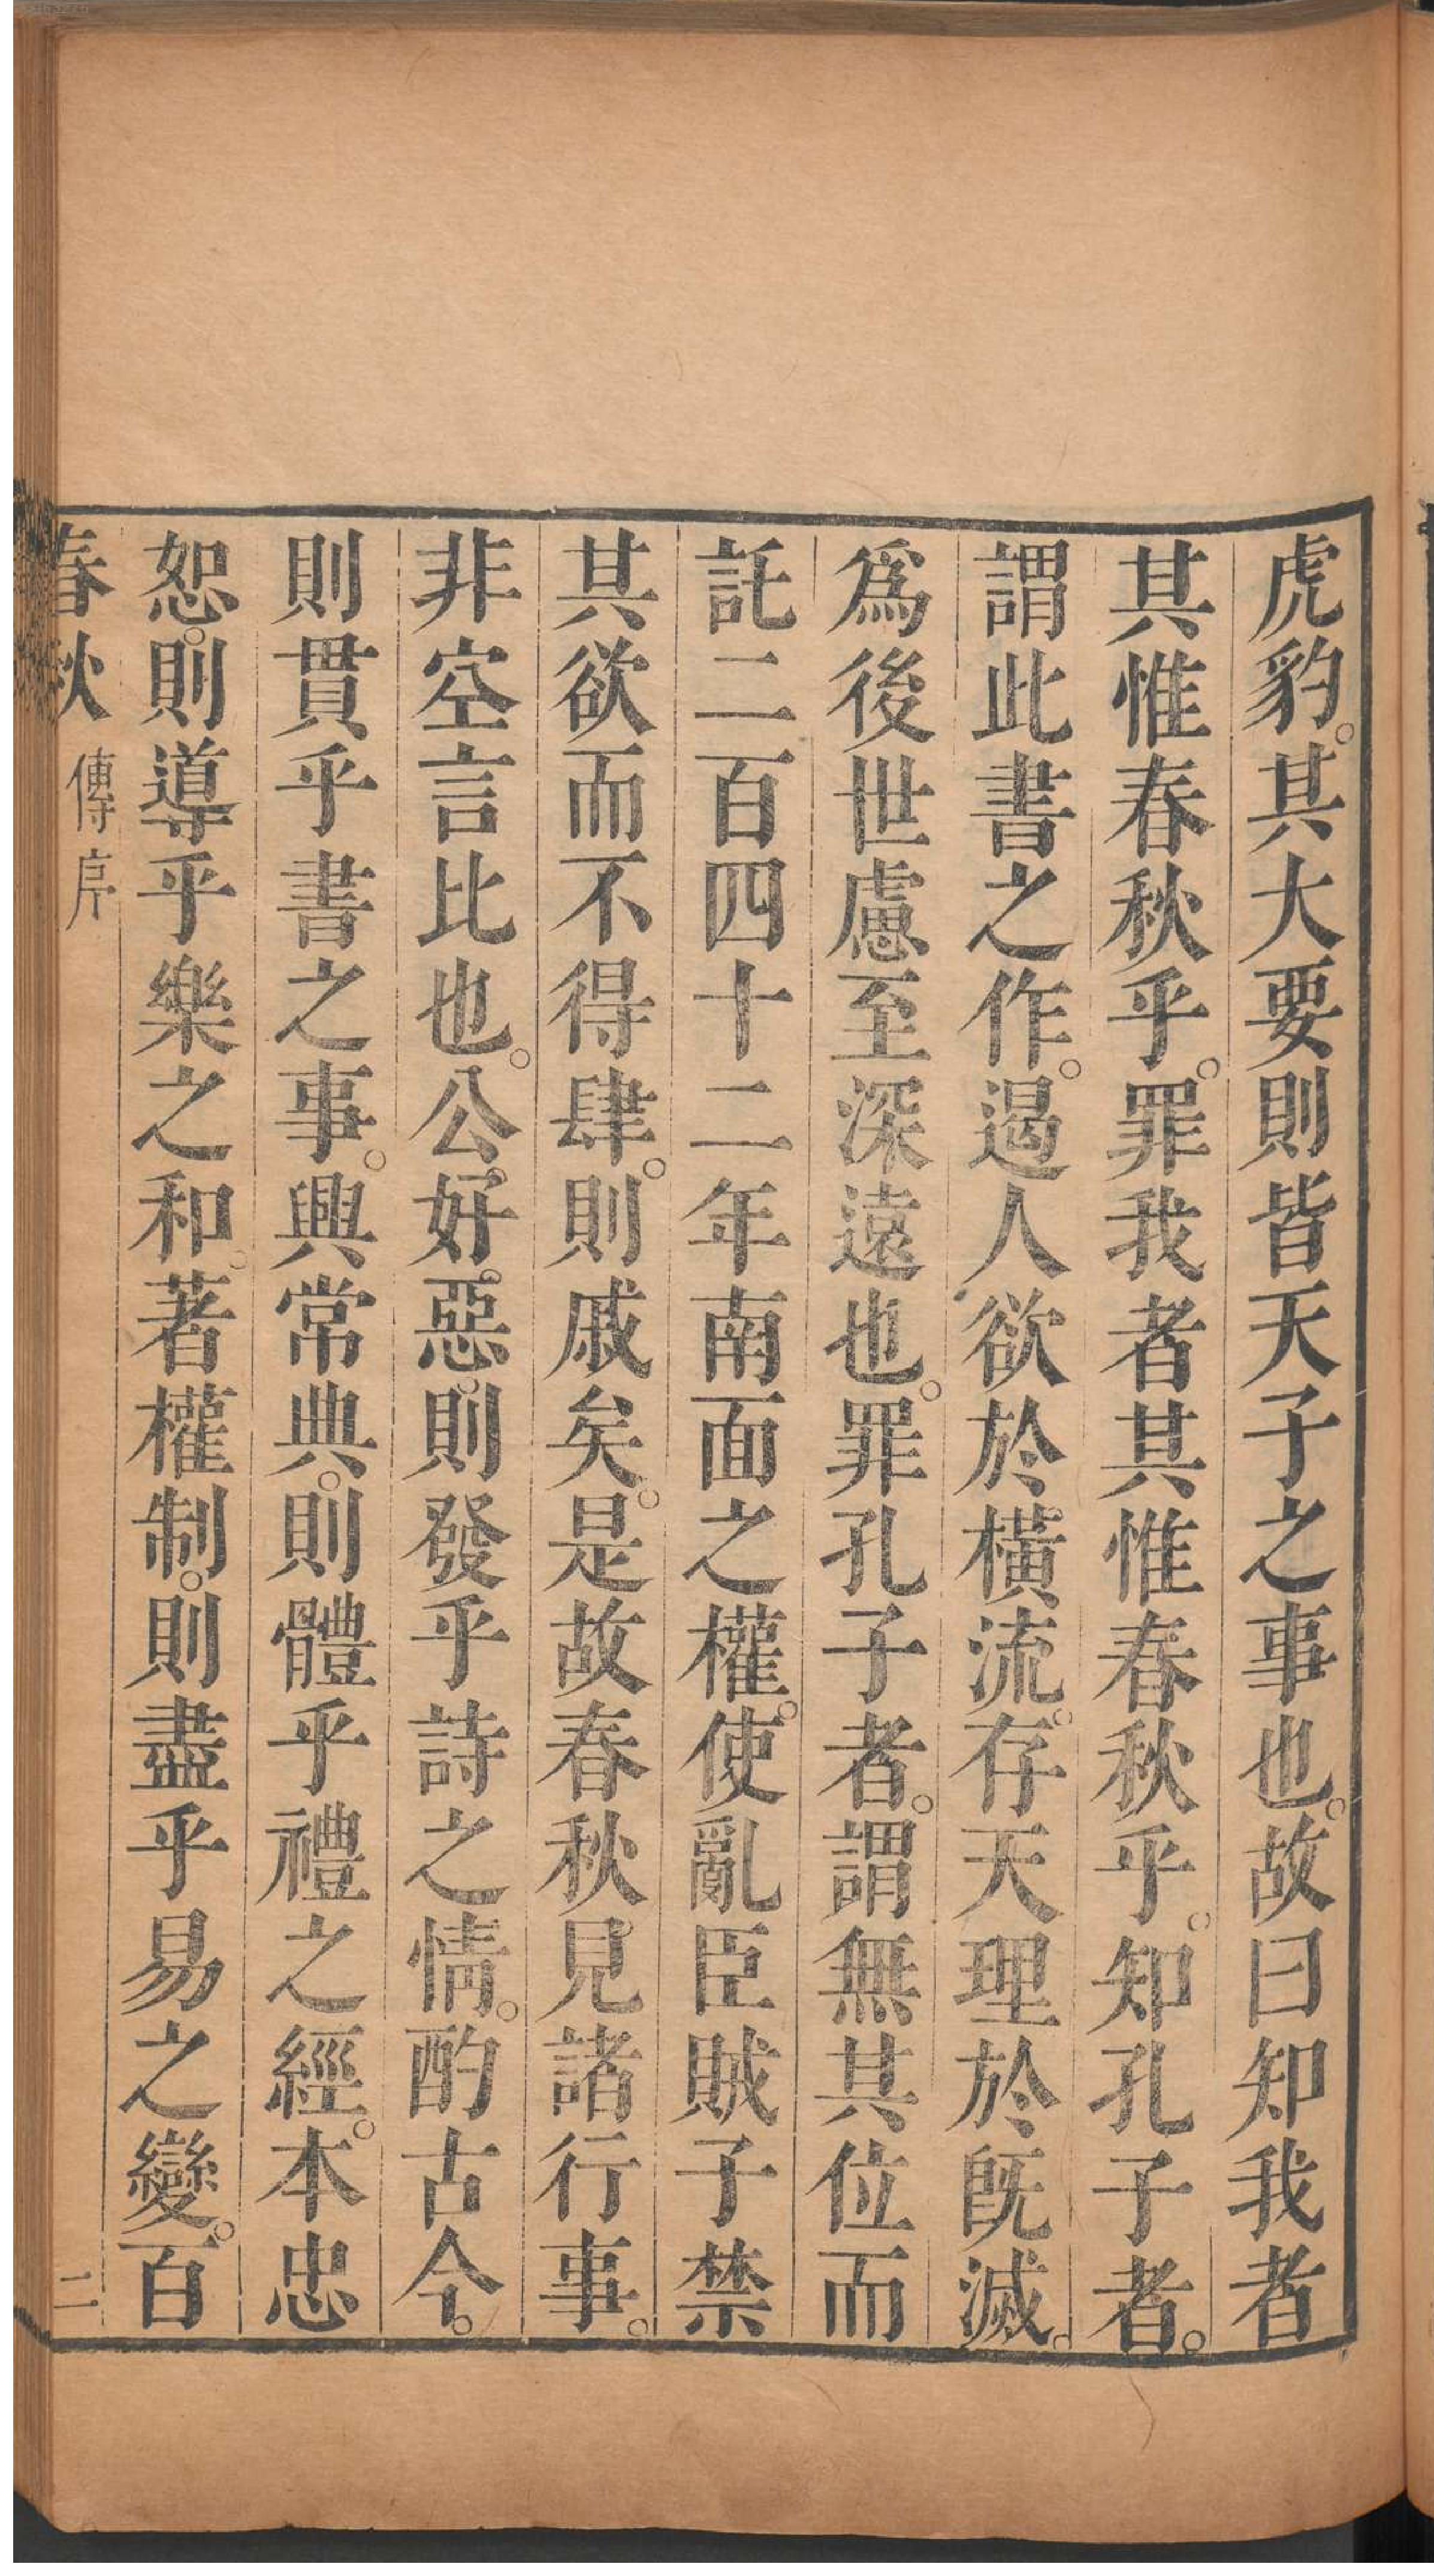 虎豹。其大要則皆天子之事也。故曰知我者
其惟春秋乎。罪我者其惟春秋乎。知孔子者。
謂此書之作。遏人欲於橫流。存天理於旣滅。
爲後世慮至深遠也。罪孔子者。謂無其位而
託二百四十二年南面之權。使亂臣賊子禁
其欲而不得肆。則戚矣。是故春秋見諸行事。
非空言比也。公。好。惡。則發乎詩之情。酌古今。
則貫乎書之事。興常典。則體乎禮之經。本忠
恕。則導乎樂之和。著權制。則盡乎易之變。百
春秋 傳序 二